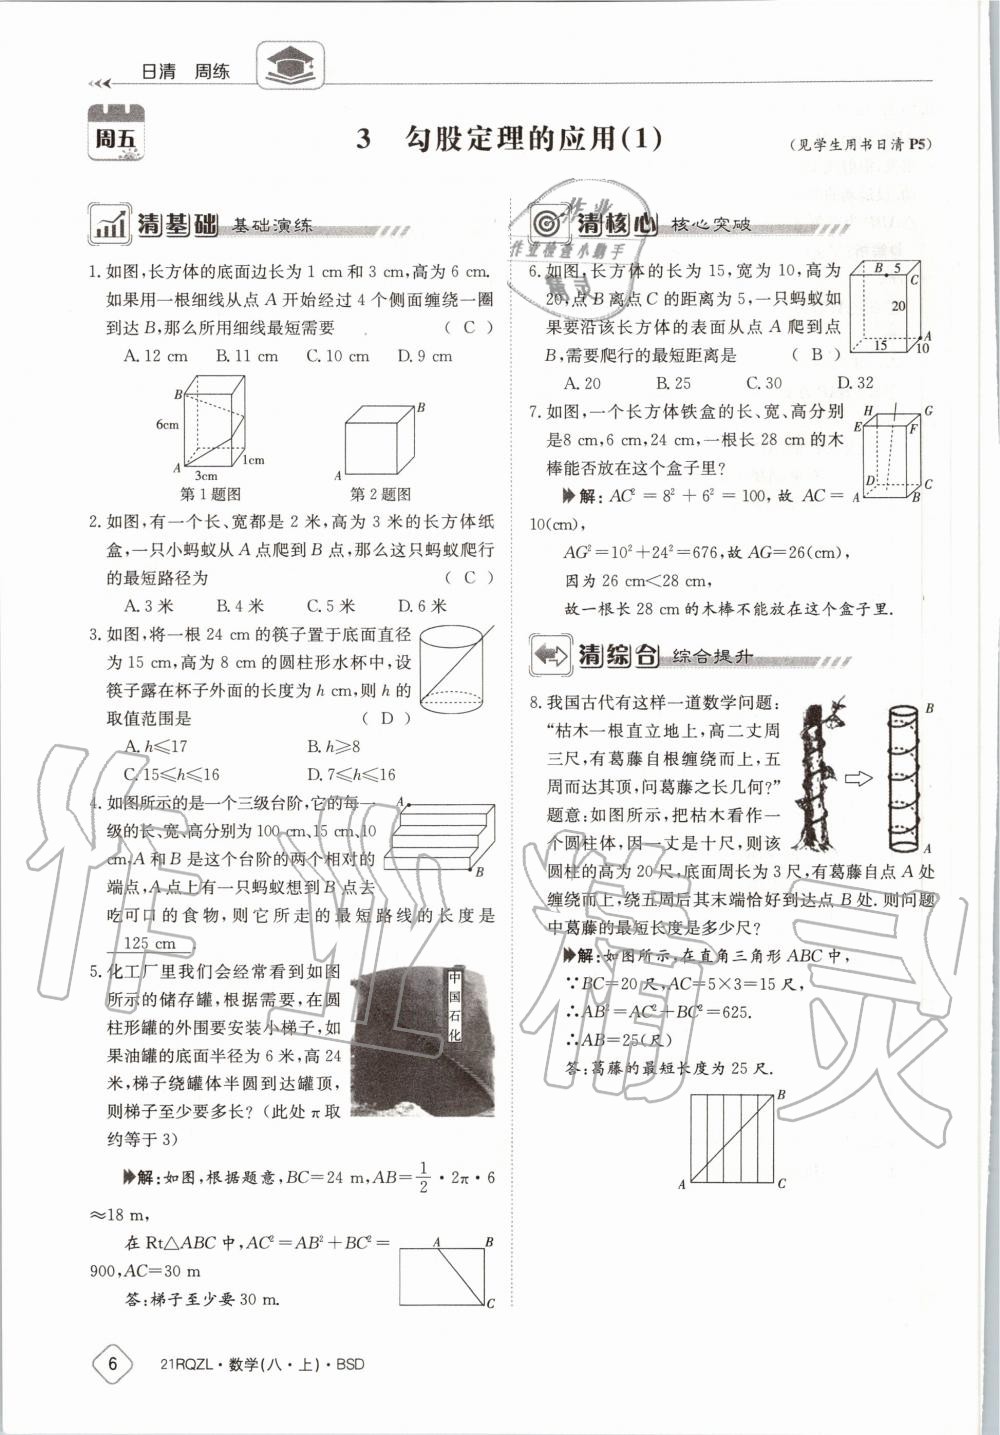 日清 周练
周五
3 勾股定理的应用(1)
(见学生用书日清 P5)
清基础 基础演练
1. 如图,长方体的底面边长为 1 cm 和 3 cm,高为 6 cm.
如果用一根细线从点 A 开始经过 4 个侧面缠绕一圈
到达 B,那么所用细线最短需要 ( C )
A. 12 cm B. 11 cm C. 10 cm D. 9 cm
B
6cm
A
3cm
1cm
第 1 题图
B
A
第 2 题图
2. 如图,有一个长、宽都是 2 米,高为 3 米的长方体纸
盒,一只小蚂蚁从 A 点爬到 B 点,那么这只蚂蚁爬行
的最短路径为 ( C )
A. 3 米 B. 4 米 C. 5 米 D. 6 米
3. 如图,将一根 24 cm 的筷子置于底面直径
为 15 cm,高为 8 cm 的圆柱形水杯中,设
筷子露在杯子外面的长度为 h cm,则 h 的
取值范围是 ( D )
A. h≤17 B. h≥8
C. 15≤h≤16 D. 7≤h≤16
4. 如图所示的是一个三级台阶,它的每一
级的长、宽、高分别为 100 cm、15 cm、10
cm,A 和 B 是这个台阶的两个相对的
端点,A 点上有一只蚂蚁想到 B 点去
吃可口的食物,则它所走的最短路线的长度是
125 cm .
A
B
5. 化工厂里我们会经常看到如图
所示的储存罐,根据需要,在圆
柱形罐的外围要安装小梯子,如
果油罐的底面半径为 6 米,高 24
米,梯子绕罐体半圆到达罐顶,
则梯子至少要多长?(此处 π 取
约等于 3)
中国石化
解:如图,根据题意,BC=24 m,AB=1/2·2π·6
≈18 m,
在 Rt△ABC 中,AC²=AB²+BC²=
900,AC=30 m
答:梯子至少要 30 m.
A B
C
清核心 核心突破
6. 如图,长方体的长为 15,宽为 10,高为
20,点 B 离点 C 的距离为 5,一只蚂蚁如
果要沿该长方体的表面从点 A 爬到点
B,需要爬行的最短距离是 ( B )
A. 20 B. 25 C. 30 D. 32
B 5
C
20
A
15 10
7. 如图,一个长方体铁盒的长、宽、高分别
是8 cm,6 cm,24 cm,一根长 28 cm 的木
棒能否放在这个盒子里?
解:AC² = 8² + 6² = 100,故 AC =
10(cm),
AG²=10²+24²=676,故 AG=26(cm),
因为 26 cm<28 cm,
故一根长 28 cm 的木棒不能放在这个盒子里.
H G
E F
D C
A B
清综合 综合提升
8. 我国古代有这样一道数学问题:
“枯木一根直立地上,高二丈周
三尺,有葛藤自根缠绕而上,五
周而达其顶,问葛藤之长几何?”
题意:如图所示,把枯木看作一
个圆柱体,因一丈是十尺,则该
圆柱的高为 20 尺,底面周长为 3 尺,有葛藤自点 A 处
缠绕而上,绕五周后其末端恰好到达点 B 处. 则问题
中葛藤的最短长度是多少尺?
B
A
解:如图所示,在直角三角形 ABC 中,
∵BC=20 尺,AC=5×3=15 尺,
∴AB²=AC²+BC²=625.
∴AB=25(尺)
答:葛藤的最短长度为 25 尺.
B
A C
作业
作业检查小助手
精灵
作业精灵
6 21RQZL·数学(八·上)·BSD